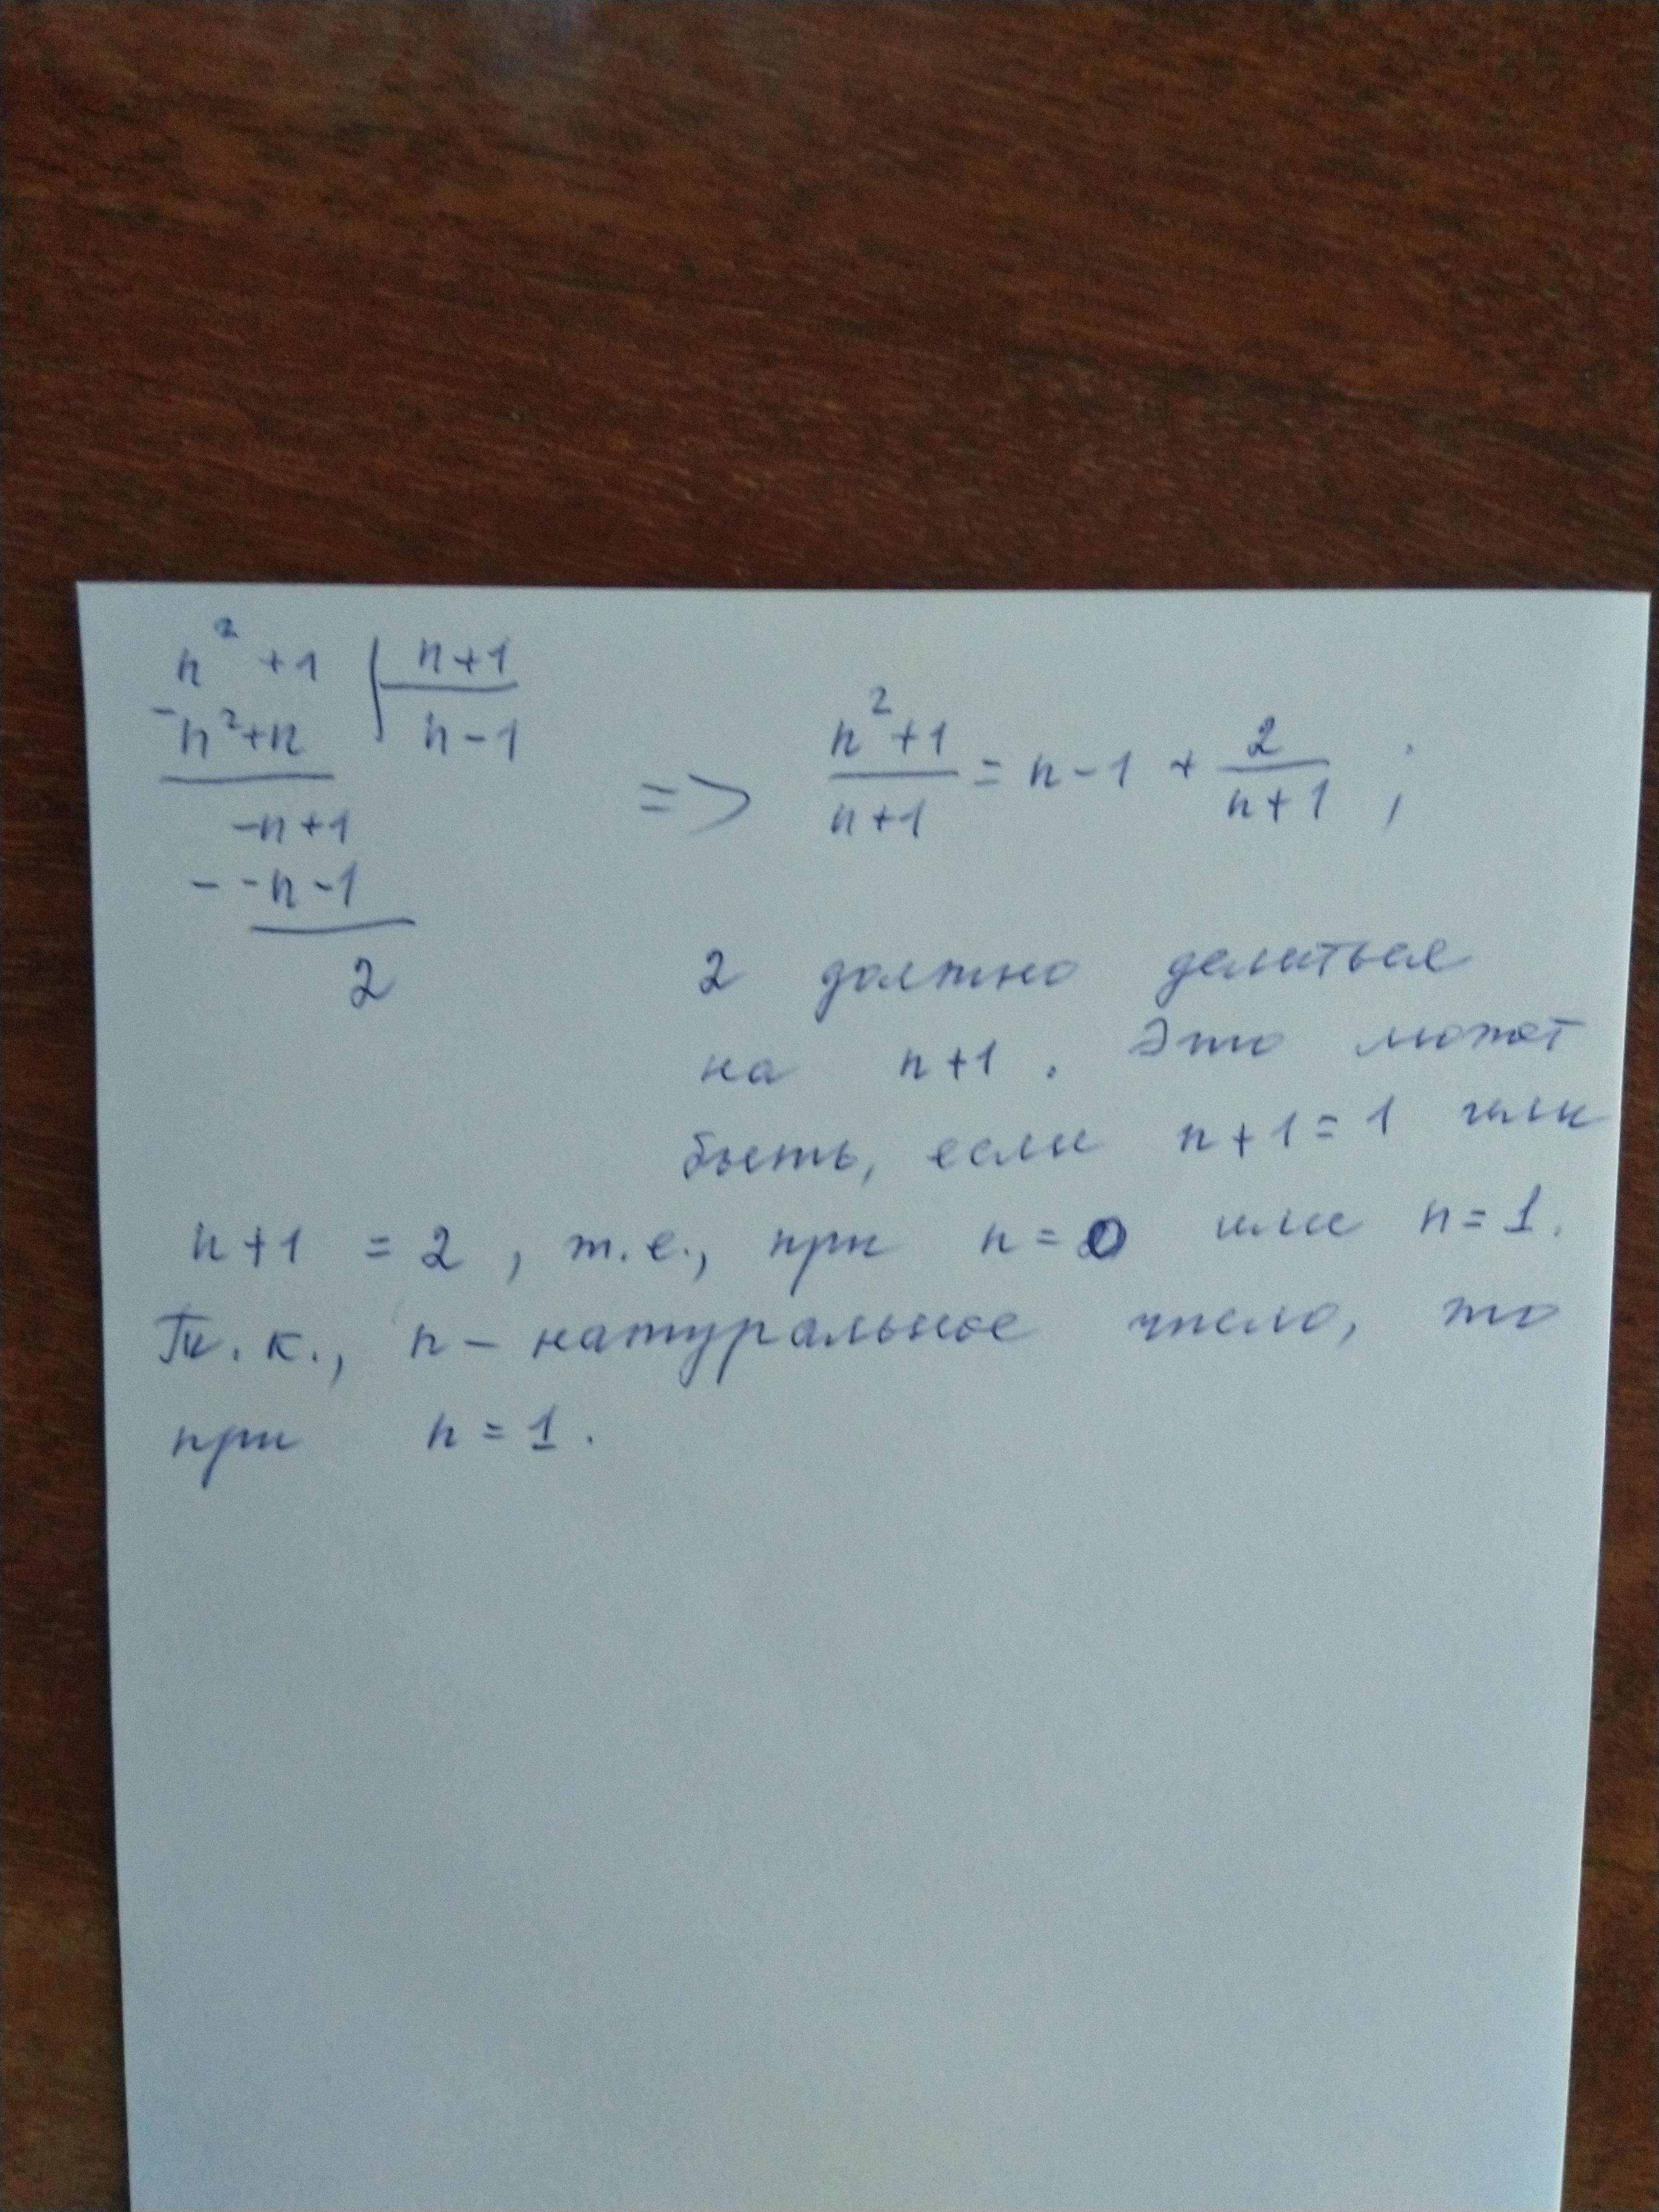 n² + 1 | n+1
- n²+n | n-1
-n+1
- -n-1
2
=> n²+1 / n+1 = n-1 + 2 / n+1 ;
2 должно делиться
на n+1. Это может
быть, если n+1=1 или
n+1 = 2, т.е., при n=0 или n=1.
Т.к., n – натуральное число, то
при n=1.